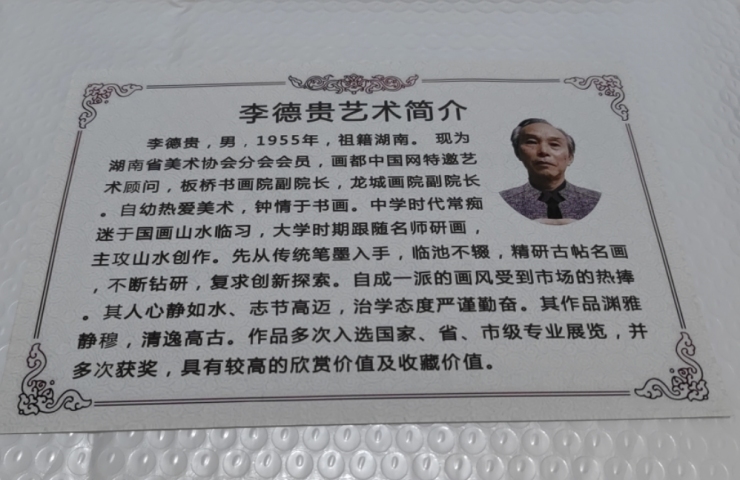 李德贵艺术简介
李德贵，男，1955年，祖籍湖南。 现为
湖南省美术协会分会会员，画都中国网特邀艺
术顾问，板桥书画院副院长，龙城画院副院长
。自幼热爱美术，钟情于书画。中学时代常痴
迷于国画山水临习，大学时期跟随名师研画，
主攻山水创作。先从传统笔墨入手，临池不辍，精研古帖名画
，不断钻研，复求创新探索。自成一派的画风受到市场的热捧
。其人心静如水、志节高迈，治学态度严谨勤奋。其作品渊雅
静穆，清逸高古。作品多次入选国家、省、市级专业展览，并
多次获奖，具有较高的欣赏价值及收藏价值。